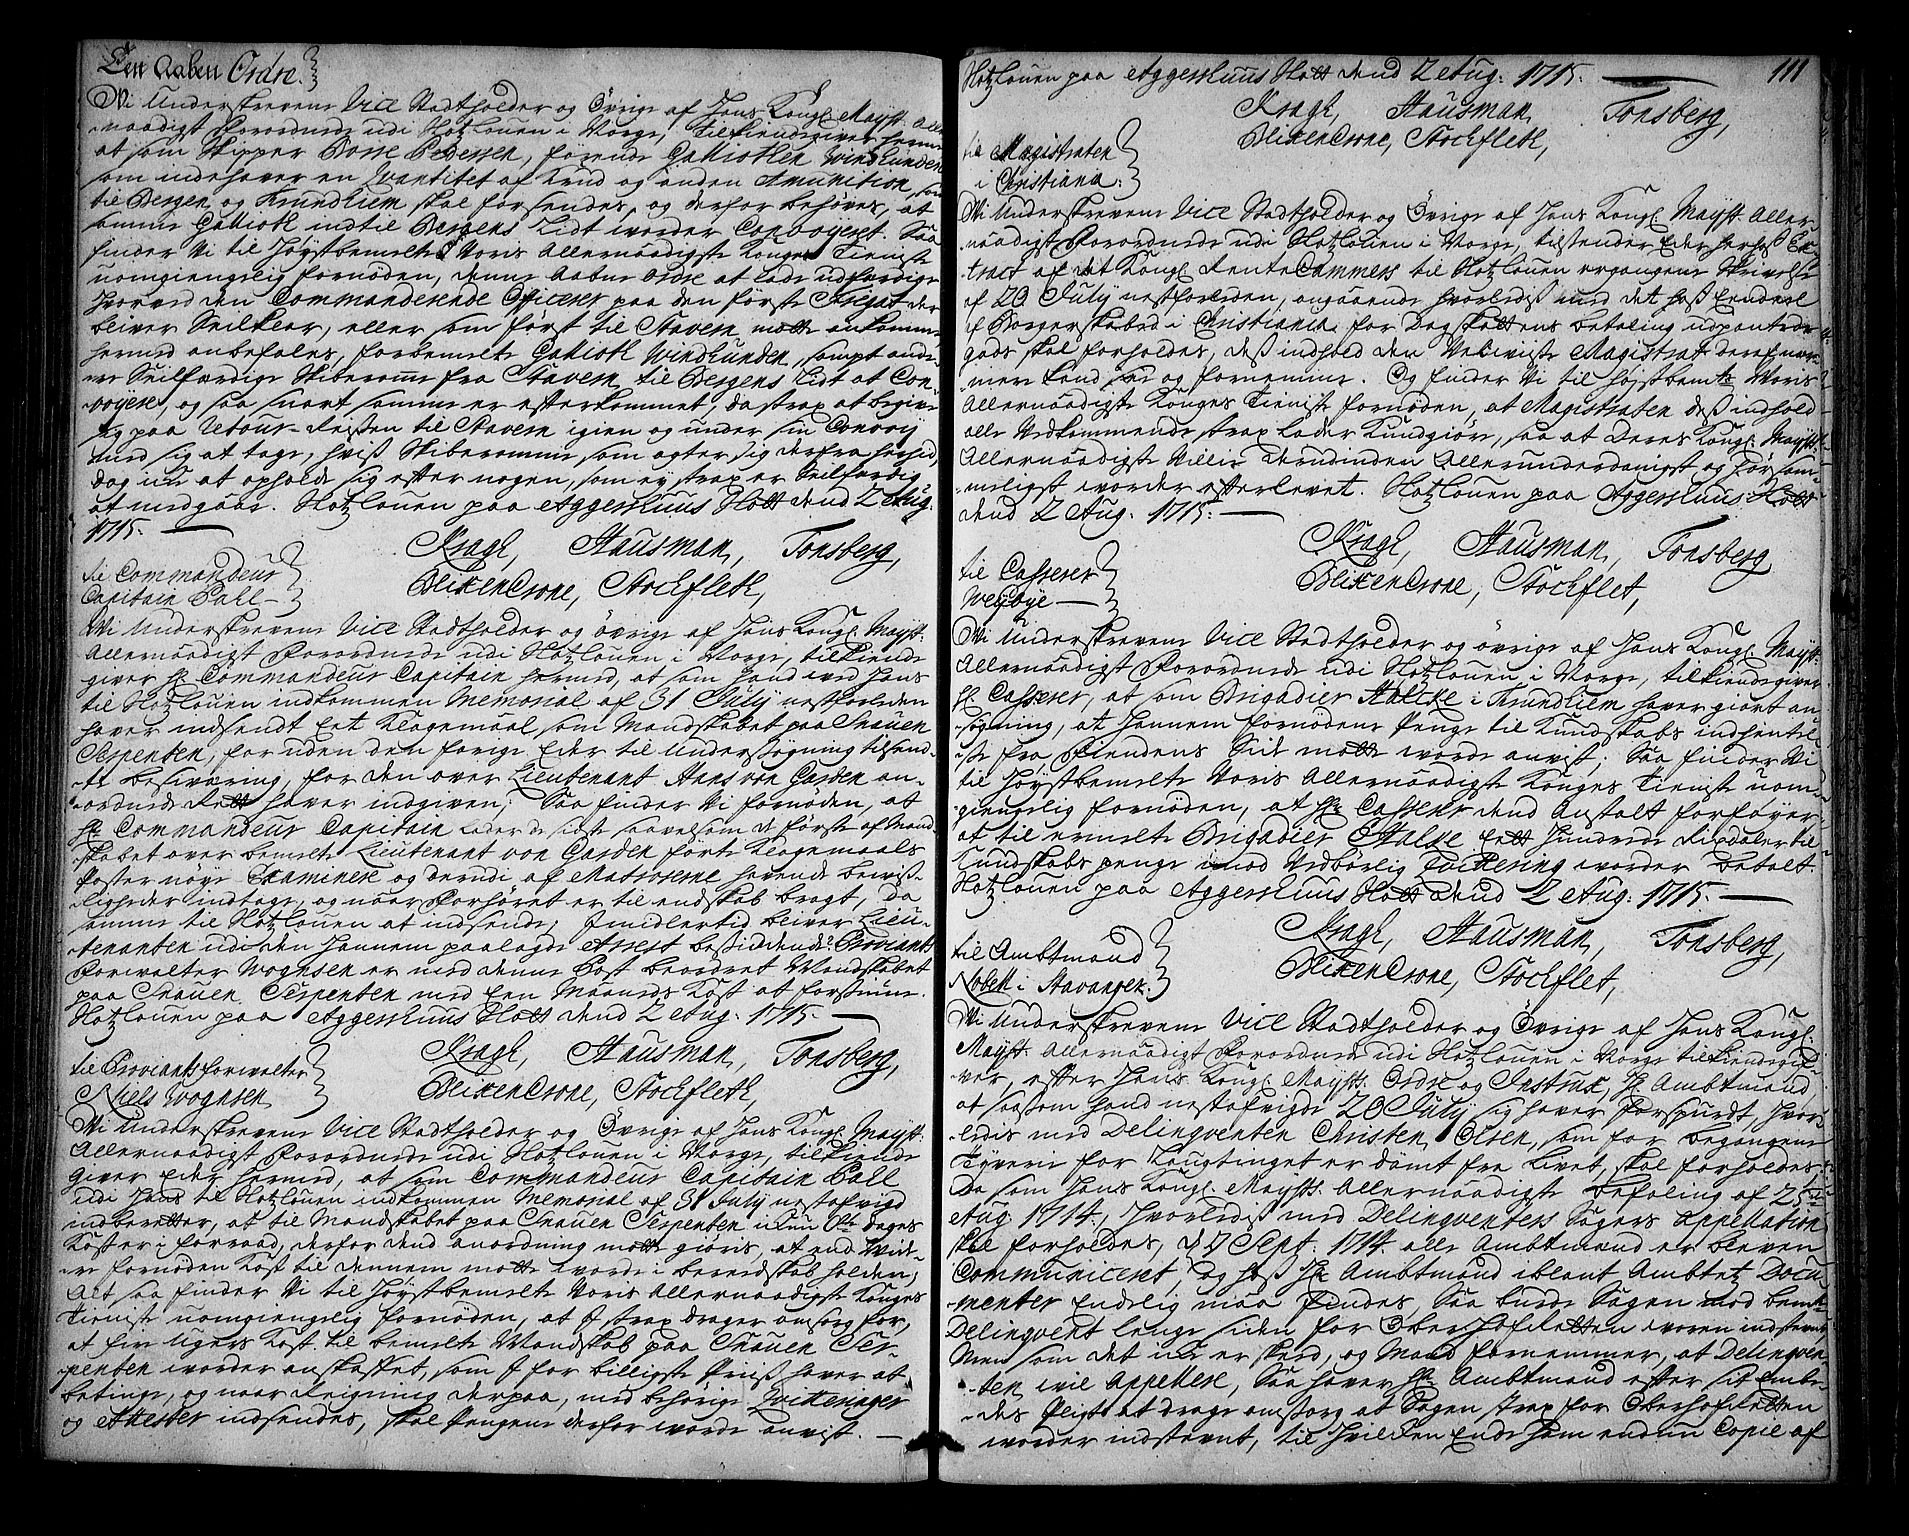 En Aaben Ordre.
Wi Underskrevene Vice Stadtholder og Øvrige af Hans Kongl. Mayst. Aller
naadigst Forordnede udi Slotzlouen i Norge, tilkiendegiver herme
at som Skipper Bosse Pedersen, førende Galliothen Windhunden
som indehaver en Qvantitet af Krud og anden Amunition, som
til Bergen og Trundhiem skal forsendes, og derfor behøves, at
samme Gallioth indtil Bergens Lidt worder Convoyeret. Saa
finder Wi til Høystbemelte Voris Allernaadigste Konges Tieniste
uomgiengelig fornøden, denne Aaben Ordre at lade udfærdige
hvorved den Commanderende Officerer paa den første Fregat der
bliver Seilklar, eller som først til Stavern motte ankomme
hermed anbefales, forbemelte Gallioth Windhunden, sampt andre
Seilfærdige Skiberomme fra Stavern til Bergens Lidt at Con-
voyere, og saa snart samme er efterkommet, da strax at begive
sig paa Retour-Reisen til Stavern igien og under sin Convoy
med sig at tage, hvis Skiberomme som agter sig derfra herhid,
dog icke at opholde sig efter nogen, som ey strax er Seilfærdig
at medgaae. Slotzlouen paa Aggershuus Slott dend 2 Aug:
1715.
Kragh, Hausman, Tonsberg,
BlixenCrone, Stochfleth,
til Commandeur
Capitain Pall
Wi Underskrevene Vice Stadtholder og øvrige af Hans Kongl. Mayst:
Allernaadigst Forordnede udi Slotzlouen i Norge, tilkiende
giver Hr. Commandeur Capitain hermed, at som hand ved hans
til Slotzlouen indkommen Memorial af 31 July nestforleden
haver indsendt Eet Klagemaal som Mandskabet paa Snauen
Serpenten, foruden den forige Eder til Undersøgning tilsend-
te besværing, for den over Lieutenant Hans von Garden an-
ordnede Rett haver indgiven; Saa finder Wi fornøden, at
Hr. Commandeur Capitain lader de sidste saavelsom de første af Mand
skabet over bemelte Lieutenant von Garden førte Klagemaals
Poster nøye Examinere og derudi af Matroserne havende bevis-
ligheder indtage, og naar Forhøret er til endskab bragt, da
samme til Slotzlouen at indsende, Imidlertid bliver Lieu-
tenanten udi den hannem paalagde Arrest besiddende. Proviant
Forwalter Woghsen er med denne Post beordret Mandskabet
paa Snauen Serpenten med Een Maaneds Kost at forsiune.
Slotzlouen paa Aggershuus Slott dend 2 Aug: 1715.
Kragh, Hausman, Tonsberg,
BlixenCrone, Stochfleth,
til Proviantsforwalter
Niels Woghsen
Wi Underskrevene Vice Stadtholder og Øvrige af Hans Kongl. Mayst:
Allernaadigst Forordnede udi Slotzlouen i Norge, tilkiende
giver Eder hermed, at som Commandeur Capitain Pall
udi hans til Slotzlouen indkommen Memorial af 31 July nestafvigt
indberetter, at til Mandskabet paa Snauen Serpenten ikun Otte dages
Kost er i forraad, derfor dend anordning motte giøris, at end vider-
re fornøden Kost til dennem motte worde i beredskab holden,
Alt saa finder Wi til Høystbemelte Voris Allernaadigste Konges
Tieniste uomgiengelig fornøden, at I strax drager omsorg for,
at fire Ugers Kost til bemelte Mandskab paa Snauen Ser-
penten worder anskaffet, som I for billigste Priis haver at
betinge, og naar Reigning derpaa, med behørige Qvitteringer
og Attester indsendes, skal Pengene derfor worde anvist.
111
Slotzlouen paa Aggershuus Slott dend 2 Aug: 1715.
Kragh, Hausman, Tonsberg,
BlixenCrone, Stochfleth,
til Magistraten
i Christiana.
Wi Underskrevene Vice Stadtholder og Øvrige af Hans Kongl. Mayst. Aller
naadigst Forordnede udi Slotzlouen i Norge, tilsender Eder herhos Ex-
tract af det Kongl. RenteCammers til Slotzlouen ergangene Skrivelse
af 20 July nestforleden, angaaende hvorledis med det hos Endeel
af Borgerskabed i Christiania for Dagskattens betaling udpantede
gods skal forholdes, des indhold den Velviise Magistrat deraf nær-
mere kand see og fornemme. Og finder Wi til høystbemte Voris
Allernaadigste Konges Tieniste fornøden, at Magistraten des indhold
alle Vedkommende strax lader kundgiøre, saa at Deres Kongl. Mayst
Allernaadigste Villie derudinden Allerunderdanigst og hørsom-
meligst worder efterlevet. Slotzlouen paa Aggershuus Slott
dend 2 Aug. 1715.
Kragh, Hausman, Tonsberg
BlixenCrone, Stochflet,
til Casserer
Weybye
Wi Underskrevene Vice Stadtholder og øvrige af Hans Kongl. Mayst:
Allernaadigst Forordnede udi Slotzlouen i Norge, tilkiendegiver
Hr. Casserer, at som Brigadier Halcke i Trundhiem haver giort an
søgning, at hannem fornødene Penge til Kundskabs indhentel-
se fra Fiendens Side motte worde anvist; Saa finder Wi
til Høystbemelte Voris Allernaadigste Konges Tieniste uom-
giengelig fornøden, at Hr. Casserer dend Anstalt forføyer,
at til ermelte Brigadier Halke Eett Hundrede Rixdaler til
Kundskabs penge imod Vedbørlig Qvittering worder betalt.
Slotzlouen paa Aggershuus Slott dend 2 Aug: 1715.
Kragh, Hausman, Tonsberg,
BlixenCrone, Stochflet,
til Ambtmand
Nobell i Stavanger.
Wi Underskrevene Vice Stadtholder og Øvrige af Hans Kongl.
Mayst. Allernaadigst Forordnede udi Slotzlouen i Norge tilkiendegi-
ver, efter Hans Kongl. Maysts. Ordre og Instrux, Hr. Ambtmand,
at saasom hand nestafvigte 20 July sig haver forspurdt, hvor-
ledis med Delinqventen Christen Olsen, som for begangene
Tyverie for Laugtinget er dømt fra Livet, skal forholdes,
Da som Hans Kongl. Maysts. Allernaadigste befaling af 25de
Aug. 1714, hvorledis med Delinqventers Sagers Appellation
skal forholdes, d. 7 Sept. 1714. alle Ambtmænd er bleven
Communiceret, og hos Hr. Ambtmand iblant Ambtetz Docu-
menter Endelig maa findes, Saa burde Sagen mod bemte
Delinqvent lenge siden for OberHofRetten voren indstevnt
Men som det icke er skeed, og Mand fornemmer, at Delinqven-
ten vil Appellere, Saa haver Hr. Ambtmand efter sit Embe-
des Pligt at drage omsorg at Sagen strax for Oberhofretten
worder indstevnt, til hvilken Ende ham endnu Copie af